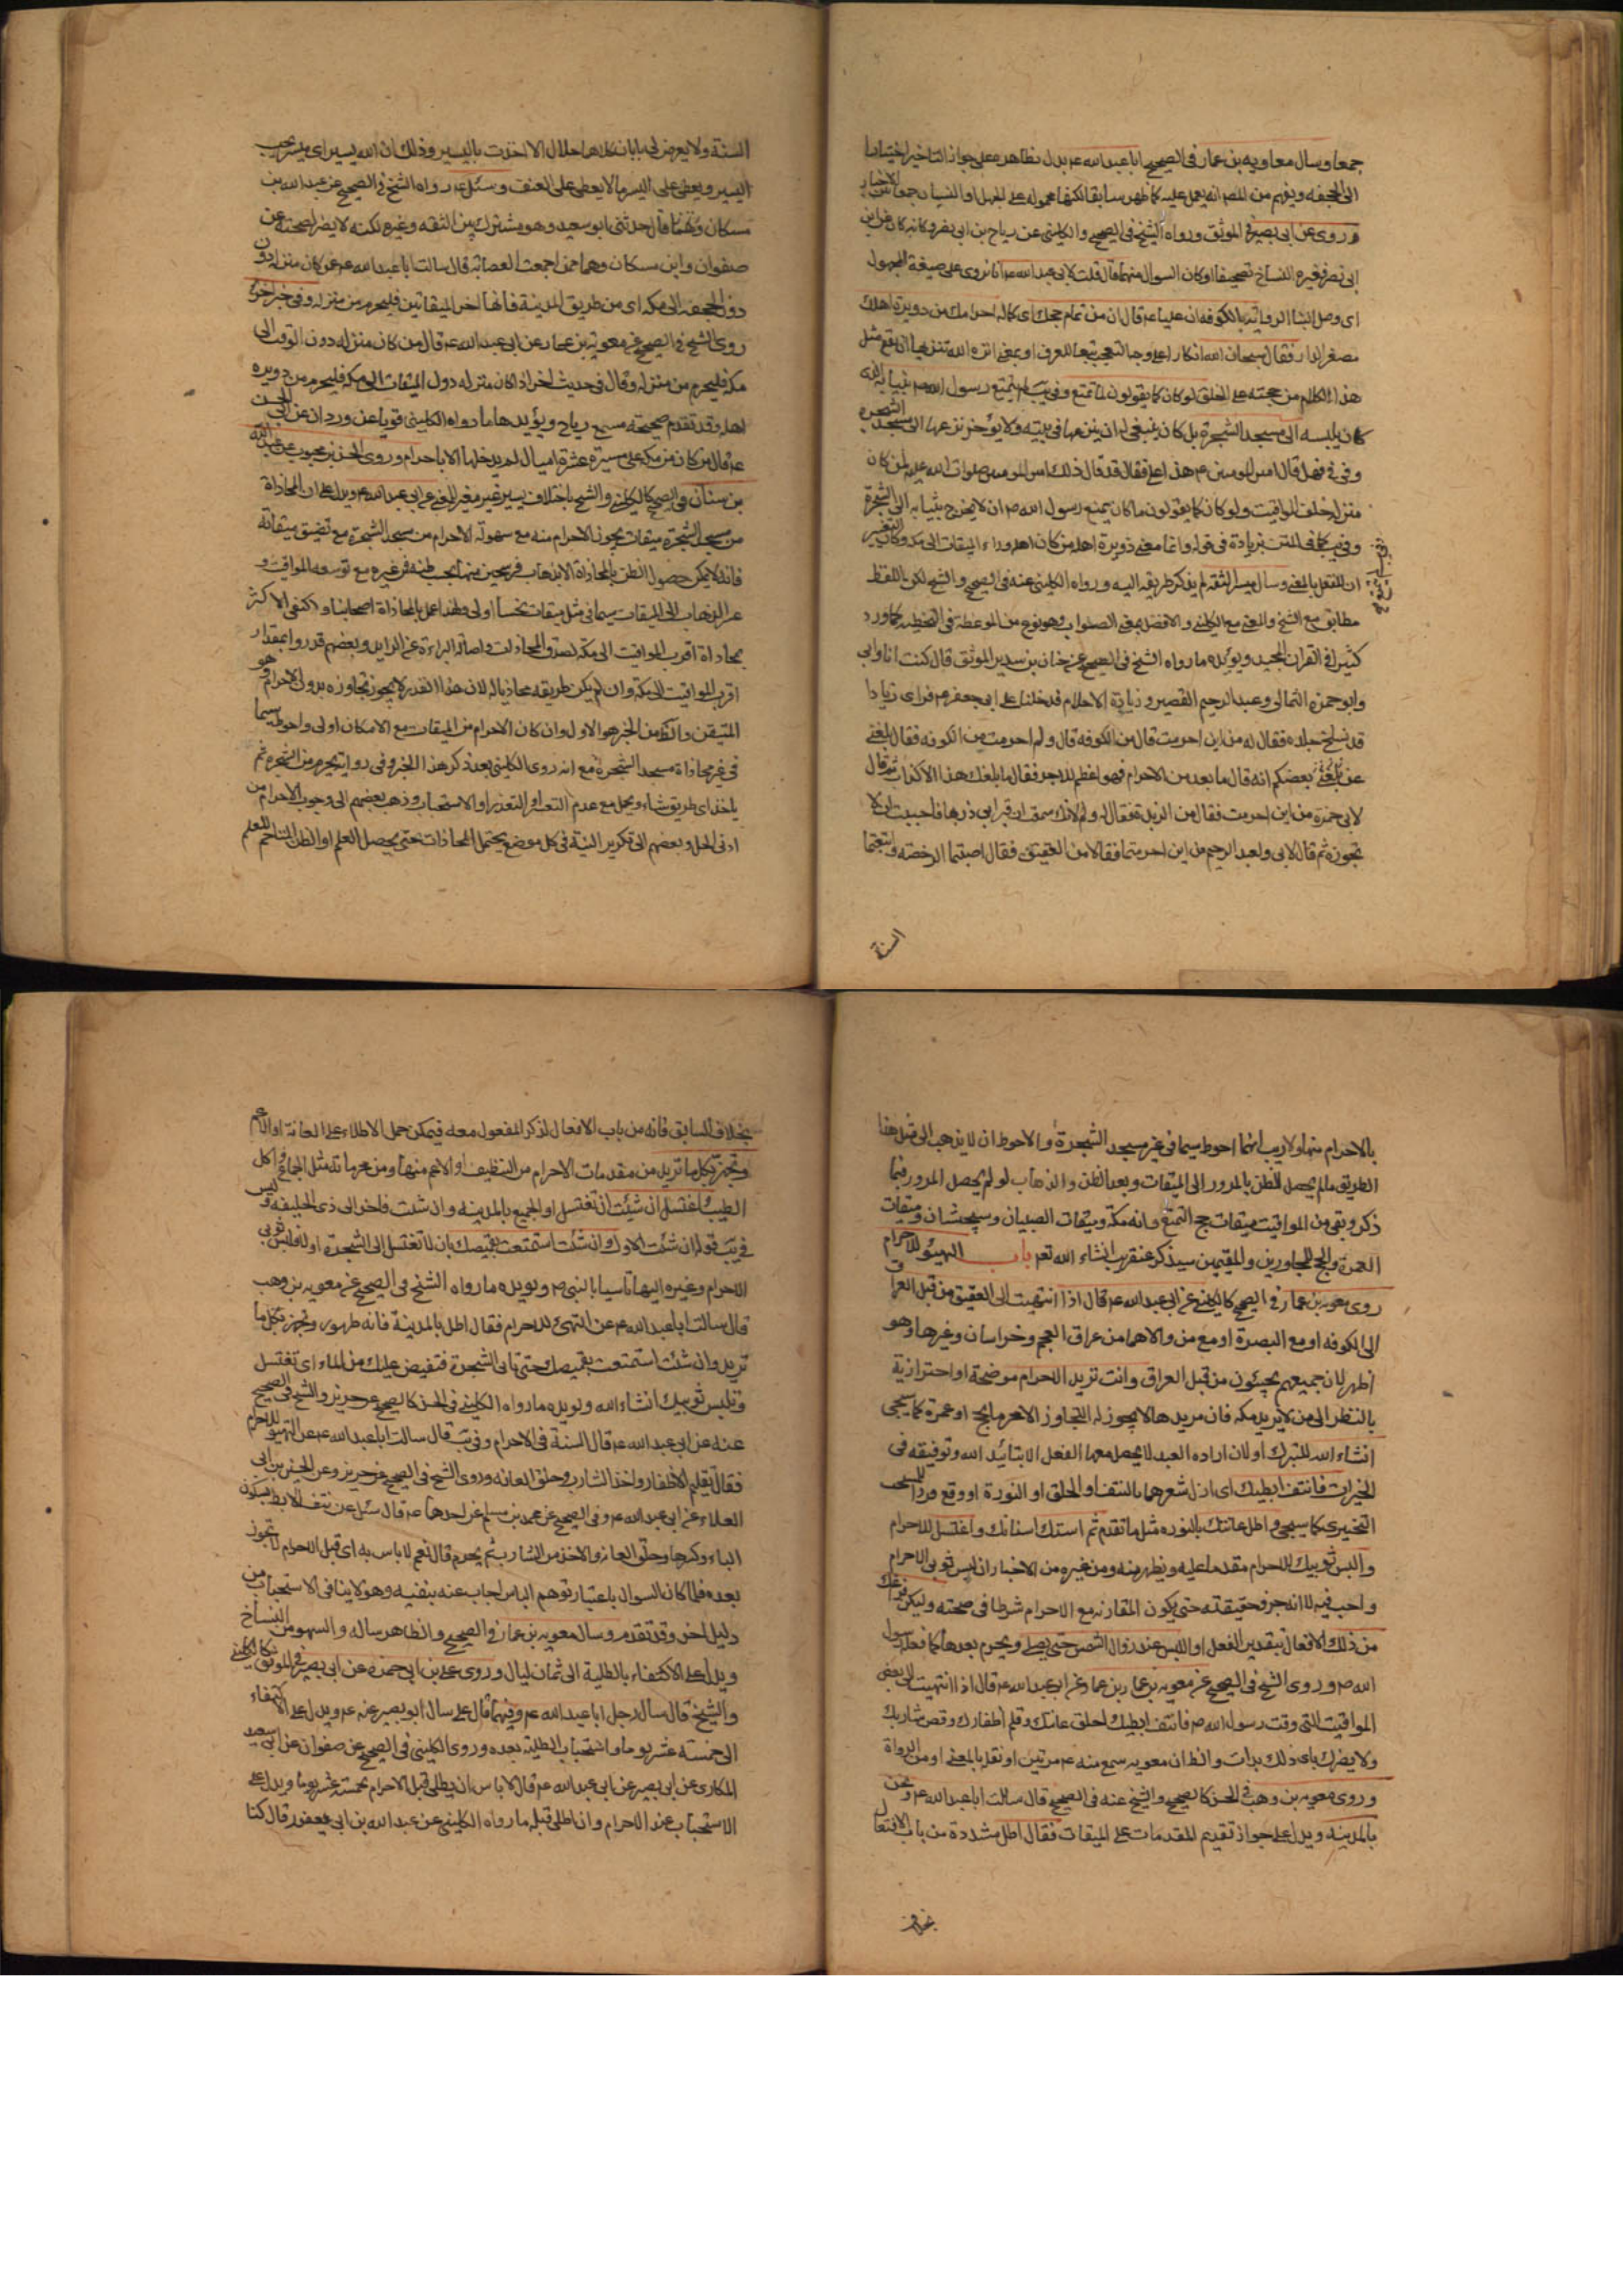 جمعا وسال معاوية بن عمار فى الصحيح ابا عبد الله ع يدل بظاهره على جواز التاخير اختيارا
الى الجحفه ويفهم من المص انه يعمل عليه كما ظهر سابقا لكنها محموله على الجهل او النسيان جمعا بين الاخبار
وروى عن ابى بصير فى الموثق ورواه الشيخ فى الصحيح والكلينى عن رياح بن ابى نصر وكانه كان عن ابن
ابى نصر فغيره النساخ تصحيفا او كان السوال منهما قال قلت لابى عبد الله ع انا نروى على صيغة المجهول
اى وصل الينا الرواية بالكوفه ان عليا ع قال ان من تمام حجك اى كماله احرامك من دويرة اهلك
مصغر الدار فقال سبحان الله انكارا على وجه التعجب تبعا للعرف او بمعنى انزه الله تنزيها ان يقع مثل
هذا الكلام من حجته على الخلق لو كان كما يقولون لما تمتع وفى يب لم يتمتع رسول الله ص بثيابه الى
كان يلبسه الى مسجد الشجرة بل كان ينبغى له ان ينزعها فى بيته ولا يؤخر نزعها الى مسجد الشجره
وفى فى فهل قال امير المومنين ع هذا لعلى فقال قد قال ذلك امير المومنين صلوات الله عليه لمن كان
منزله خلف المواقيت ولو كان كما يقولون ما كان يمنع رسول الله ص ان لا يخرج بثيابه الى الشجرة
وفى يب كما فى المتن بزيادة فى قوله وانما معنى دويرة اهله من كان اهله وراء الميقات الى مكه وكان التغيير
ان للنقل بالمعنى وسال ميسر الثقه لم يذكر طريقه اليه ورواه الكلينى عنه فى الصحيح والشيخ لكن باللفظ
مطابق مع الشيخ والمعنى مع الكلينى والافضل بمعنى الصواب وهو نوع من الموعظة فى التخطيه كما ورد
كثيرا فى القران المجيد ويؤيده ما رواه الشيخ فى الصحيح عن حنان بن سدير الموثق قال كنت انا وابى
وابو حمزه الثمالى وعبد الرحيم القصير وزيادة الاحلام فدخلنا على ابى جعفر ع فراى زيادا
قد تسلخ جلده فقال له من اين احرمت قال من الكوفه قال ولم احرمت من الكوفه فقال بلغنى
عن بعضكم انه قال ما بعد من الاحرام فهو اعظم للاجر فقال ما بلغك هذا الا كذاب ثم قال
لابى حمزه من اين احرمت فقال من الربذة فقال له ولم لانك سمعت ان قبر ابى ذر بها فاحببت ان لا
تجوزه ثم قال لابى ولعبد الرحيم من اين احرمتما فقالا من العقيق فقال اصبتما الرخصه واتبعتما
السنة
السنة ولا يعرض لى بابان كلاهما حلال الا اخذت باليسير وذلك ان الله يسير اى ميسر يحب
اليسير ويعطى على اليسر ما لا يعطى على العنف وسئل ع رواه الشيخ فى الصحيح عن عبد الله بن
مسكان قال حدثنى ابو سعيد وهو مشترك بين الثقه وغيره لكنه لا يضر لصحته عن
صفوان وابن مسكان وهما ممن اجمعت العصابة قال سالت ابا عبد الله ع عمن كان منزله دون
دون الجحفه الى مكه اى من طريق المدينة فانها اخر الميقاتين فليحرم من منزله وفى خبر اخر
روى الشيخ فى الصحيح عن معوية بن عمار عن ابى عبد الله ع قال من كان منزله دون الوقت الى
مكه فليحرم من منزله وقال فى حديث اخر اذا كان منزله دون الميقات الى مكه فليحرم من دويرة
اهله وقد تقدم صحيحة مسمع رياح ويؤيدها ما رواه الكلينى قويا عن وردان عن ابى الحسن
ع قال من كان من مكه على مسيرة عشرة اميال لم يدخلها الا باحرام وروى الحسن بن محبوب عن عبد الله
بن سنان فى الصحيح كالكلينى والشيخ باختلاف يسير غير مغير للمعنى عن ابى عبد الله ع ويدل على ان المحاذاة
من مسجد الشجرة ميقات يجوز الاحرام منه مع سهولة الاحرام من مسجد الشجرة مع تضيق ميقاته
فانه لا يمكن حصول الظن بالمحاذاة الا بذهاب فرسخين منها بحسب ظنه ففى غيره مع توسعه المواقيت و
عسر الذهاب الى الميقات سيما فى مثل ميقات يكون اولى ولهذا عمل بالمحاذاة اصحابنا واكتفى الاكثر
بمحاذاة اقرب المواقيت الى مكه لصدق المحاذات واصالة البراءة عن الزايد وبعضهم قدروا بمقدار
اقرب المواقيت الى مكة وان لم يكن طريقه محاذيا لها لان هذا القدر لا يجوز تجاوزه بدون الاحرام وهو
المتيقن والظ من الخبر هو الاول وان كان الاحرام من الميقات مع الامكان اولى واحوط سيما
فى غير محاذاة مسجد الشجرة مع انه روى الكلينى بعد ذكر هذا الخبر وفى رواية يحرم من الشجرة ثم
ياخذ اى طريق شاء ويحمل مع عدم التعسر او التعذر او الاستحباب وذهب بعضهم الى وجوب الاحرام من
ادنى الحل وبعضهم الى تكرير النية فى كل موضع يحتمل المحاذات حتى يحصل العلم او الظن المتاخم للعلم
بالاحرام منها ولا ريب انهما احوط سيما فى غير مسجد الشجرة والاحوط ان لا يذهب الى مثل هذا
الطريق ما لم يحصل الظن بالمرور الى الميقات وبعد الظن والذهاب لو لم يحصل المرور فبما
ذكر وبقى من المواقيت ميقات حج التمتع وانه مكة وميقات الصبيان وسيجيئان وميقات
العمرة والحج للمجاورين والمقيمين سيذكر عنقريب انشاء الله تعه باب التهيؤ للاحرام
روى معوية بن عمار فى الصحيح كالكلينى عن ابى عبد الله ع قال اذا انتهيت الى العقيق من قبل العراق
الى الكوفه او مع البصرة او مع من والاهما من عراق العجم وخراسان وغيرها وهو
اظهر لان جميعهم يجيئون من قبل العراق وانت تريد الاحرام موضحة او احترازية
بالنظر الى من لا يريد مكه فان مريدها لا يجوز له التجاوز الا محرما بحج او عمرة كما سيجئ
انشاء الله للتبرك او لان اراده العبد لا يحصل معها الفعل الا بتائيد الله وتوفيقه فى
الخيرات فانتف ابطيك اى ازل شعرهما بالنتف او الحلق او النورة او وقع فردا للمستحب
التخييرى كما سيجئ واطل عانتك بالنوره مثل ما تقدم ثم استك اسنانك واغتسل للاحرام
والبس ثوبيك للاحرام مقدما عليه ويظهر منه ومن غيره من الاخبار ان لبس ثوبى الاحرام
واجب فيه لا انه جزو حقيقته حتى يكون المقارنه مع الاحرام شرطا فى صحته وليكن فراغك
من ذلك الافعال بتقدير الفعل او اللبس عند زوال الشمس حتى يصلى ويحرم بعدها كما فعله رسول
الله ص وروى الشيخ فى الصحيح عن معوية بن عمار عن ابى عبد الله ع قال اذا انتهيت الى بعض
المواقيت التى وقت رسول الله ص فانتف ابطيك واحلق عانتك وقلم اظفارك وقص شاربك
ولا يضرك باى ذلك بدات والظ ان معويه سمع منه ع مرتين او نقل بالمعنى او من الرواة
وروى معويه بن وهب فى الحسن كالصحيح والشيخ عنه فى الصحيح قال سالت ابا عبد الله ع ونحن
بالمدينه ويدل على جواز تقديم المقدمات على الميقات فقال اطل مشددة من باب الافتعال
بخلاف
بخلاف السابق فانه من باب الافعال لذكر المفعول معه فيمكن حمل الاطلاء على العانة او الاعم
وتجهز بكل ما تريد من مقدمات الاحرام من التنظيف او الاعم منها ومن محرماته مثل الجماع واكل
الطيب واغتسل ان شئت ان تغتسل او الجميع بالمدينه وان شئت فاخر الى ذى الحليفه وليس
فى يب قوله ان شئت الاول وان شئت استمتعت بقميصك بان لا تغتسل الى الشجرة او لا تلبس ثوبى
الاحرام وغيره اليها تاسيا بالنبى ص ويويده ما رواه الشيخ فى الصحيح عن معويه بن وهب
قال سالت ابا عبد الله ع عن التهئ للاحرام فقال اطل بالمدينة فانه طهور وتجهز بكل ما
تريد وان شئت استمتعت بقميصك حتى تاتى الشجرة فتفيض عليك من الماء اى تغتسل
وتلبس ثوبيك انشاء الله ويويده ما رواه الكلينى فى الحسن كالصحيح عن حريز والشيخ فى الصحيح
عنه عن ابى عبد الله ع قال السنة فى الاحرام وفى يب قال سالت ابا عبد الله ع عن التهيؤ للاحرام
فقال تقليم الاظفار واخذ الشارب وحلق العانه وروى الشيخ فى الصحيح عن حريز وعن الحسين بن ابى
العلاء عن ابى عبد الله ع وفى الصحيح عن محمد بن مسلم عن احدهما ع قال سئل عن نتف الابط بسكون
الباء وكسرها وحلق العانه والاخذ من الشارب ثم يحرم قال نعم لا باس به اى قبل الاحرام لا يجوز
بعده فلما كان السوال باعتبار توهم الباس اجاب عنه بنفيه وهو لا ينافى الاستحباب من
دليل اخر وقد تقدم وسال معويه بن عمار فى الصحيح والظاهر ساله والسهو من النساخ
ويدل على الاكتفاء بالطلية الى ثمان ليال وروى على بن ابى حمزه عن ابى بصير فى الموثق كالكلينى
والشيخ قال سال رجل ابا عبد الله ع وفيهما قال على سال ابو بصير عنه ع ويدل على الاكتفاء
الى خمسة عشر يوما واستحباب الطلية بعده وروى الكلينى فى الصحيح عن صفوان عن ابى سعيد
المكارى عن ابى بصير عن ابى عبد الله ع قال لا باس ان يطلى قبل الاحرام بخمسة عشر يوما ويدل على
الاستحباب عند الاحرام وان اطلى قبله ما رواه الكلينى عن عبد الله بن ابى يعفور قال كنا